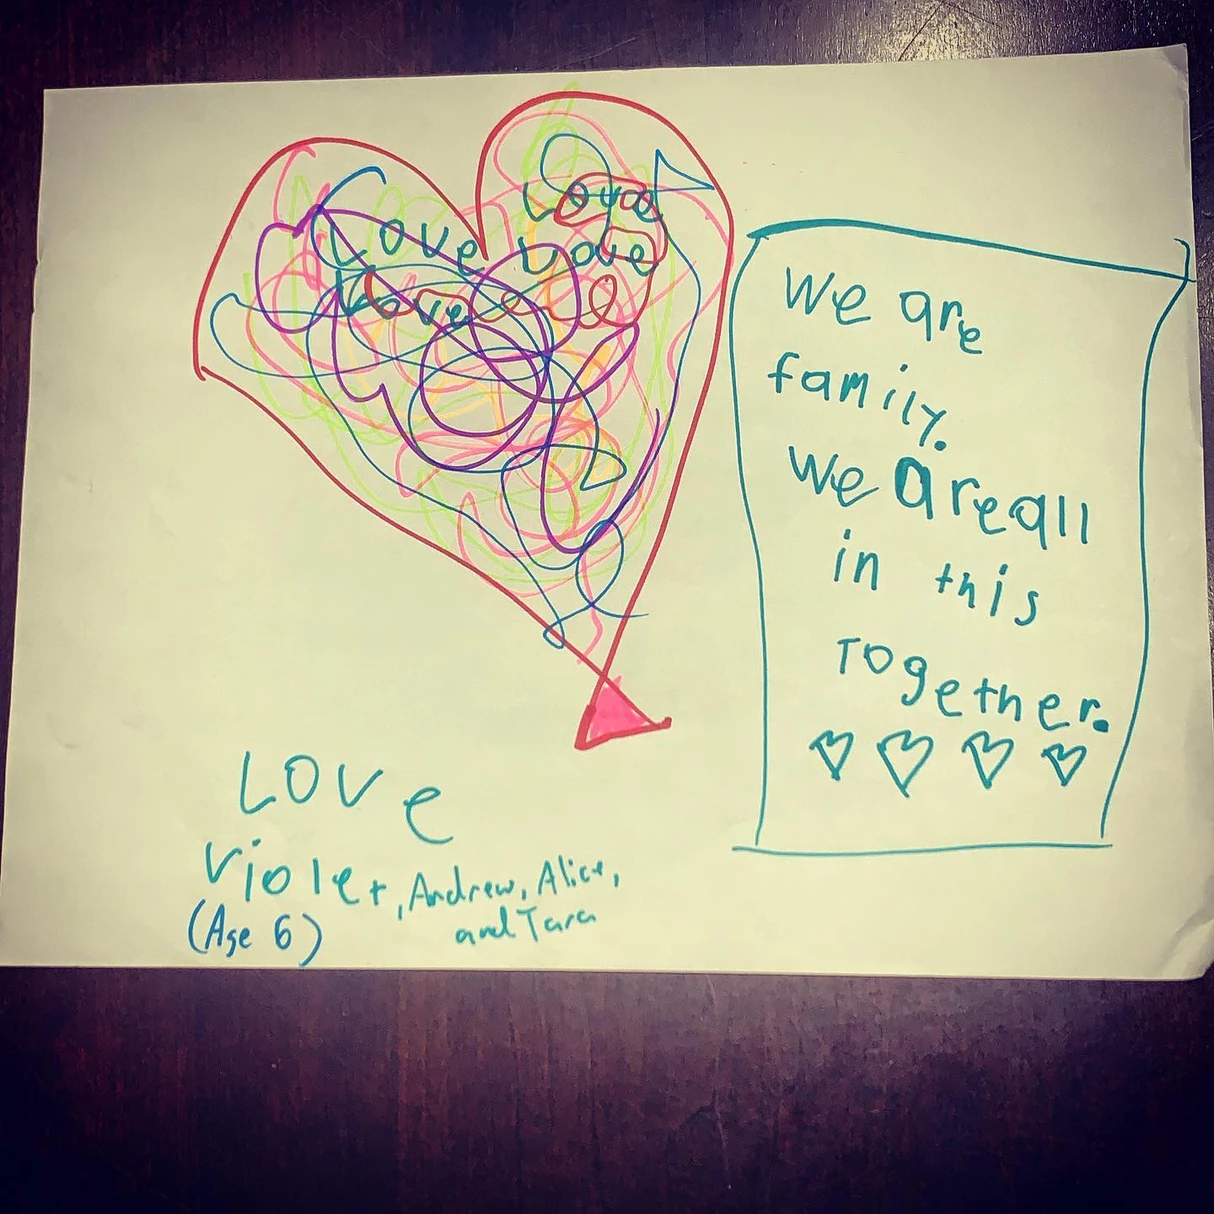 Love
Love
Love
Love
We are
family.
We are all
in this
Together.
LOVe
Violet, Andrew, Alice,
and Tara
(Age 6)